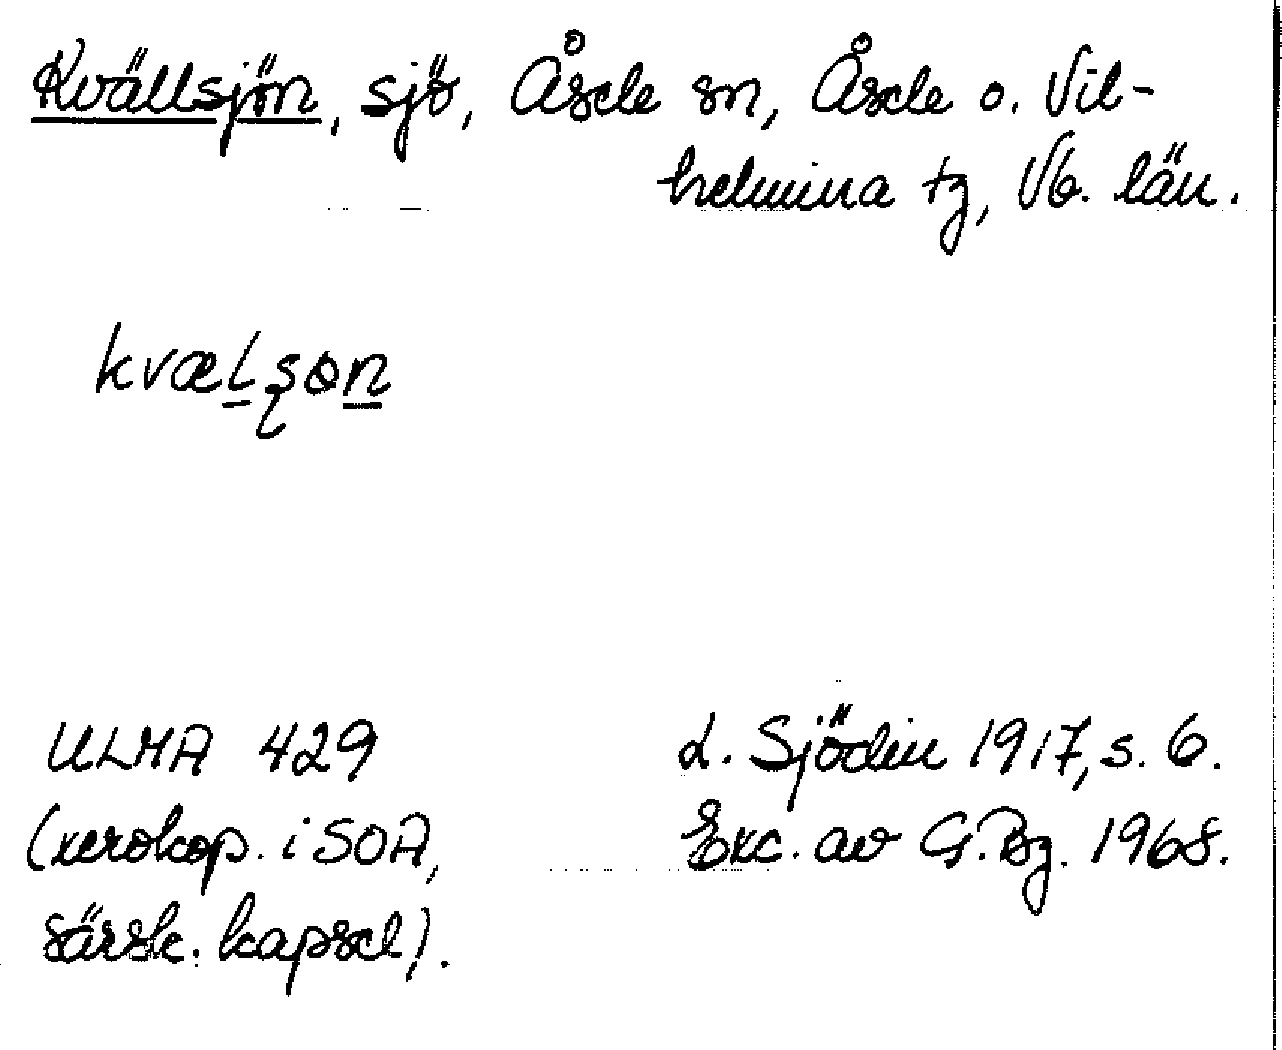 Kvällsjön, sjö, Åsele sn, Åsele o. Vil-
helmina tg, Vb. län.
kvælsøn
ULMA 429
(xerokop. i SOA,
särsk. kapsel).
L. Sjödin 1917, s. 6.
Exc. av G. Bg. 1968.